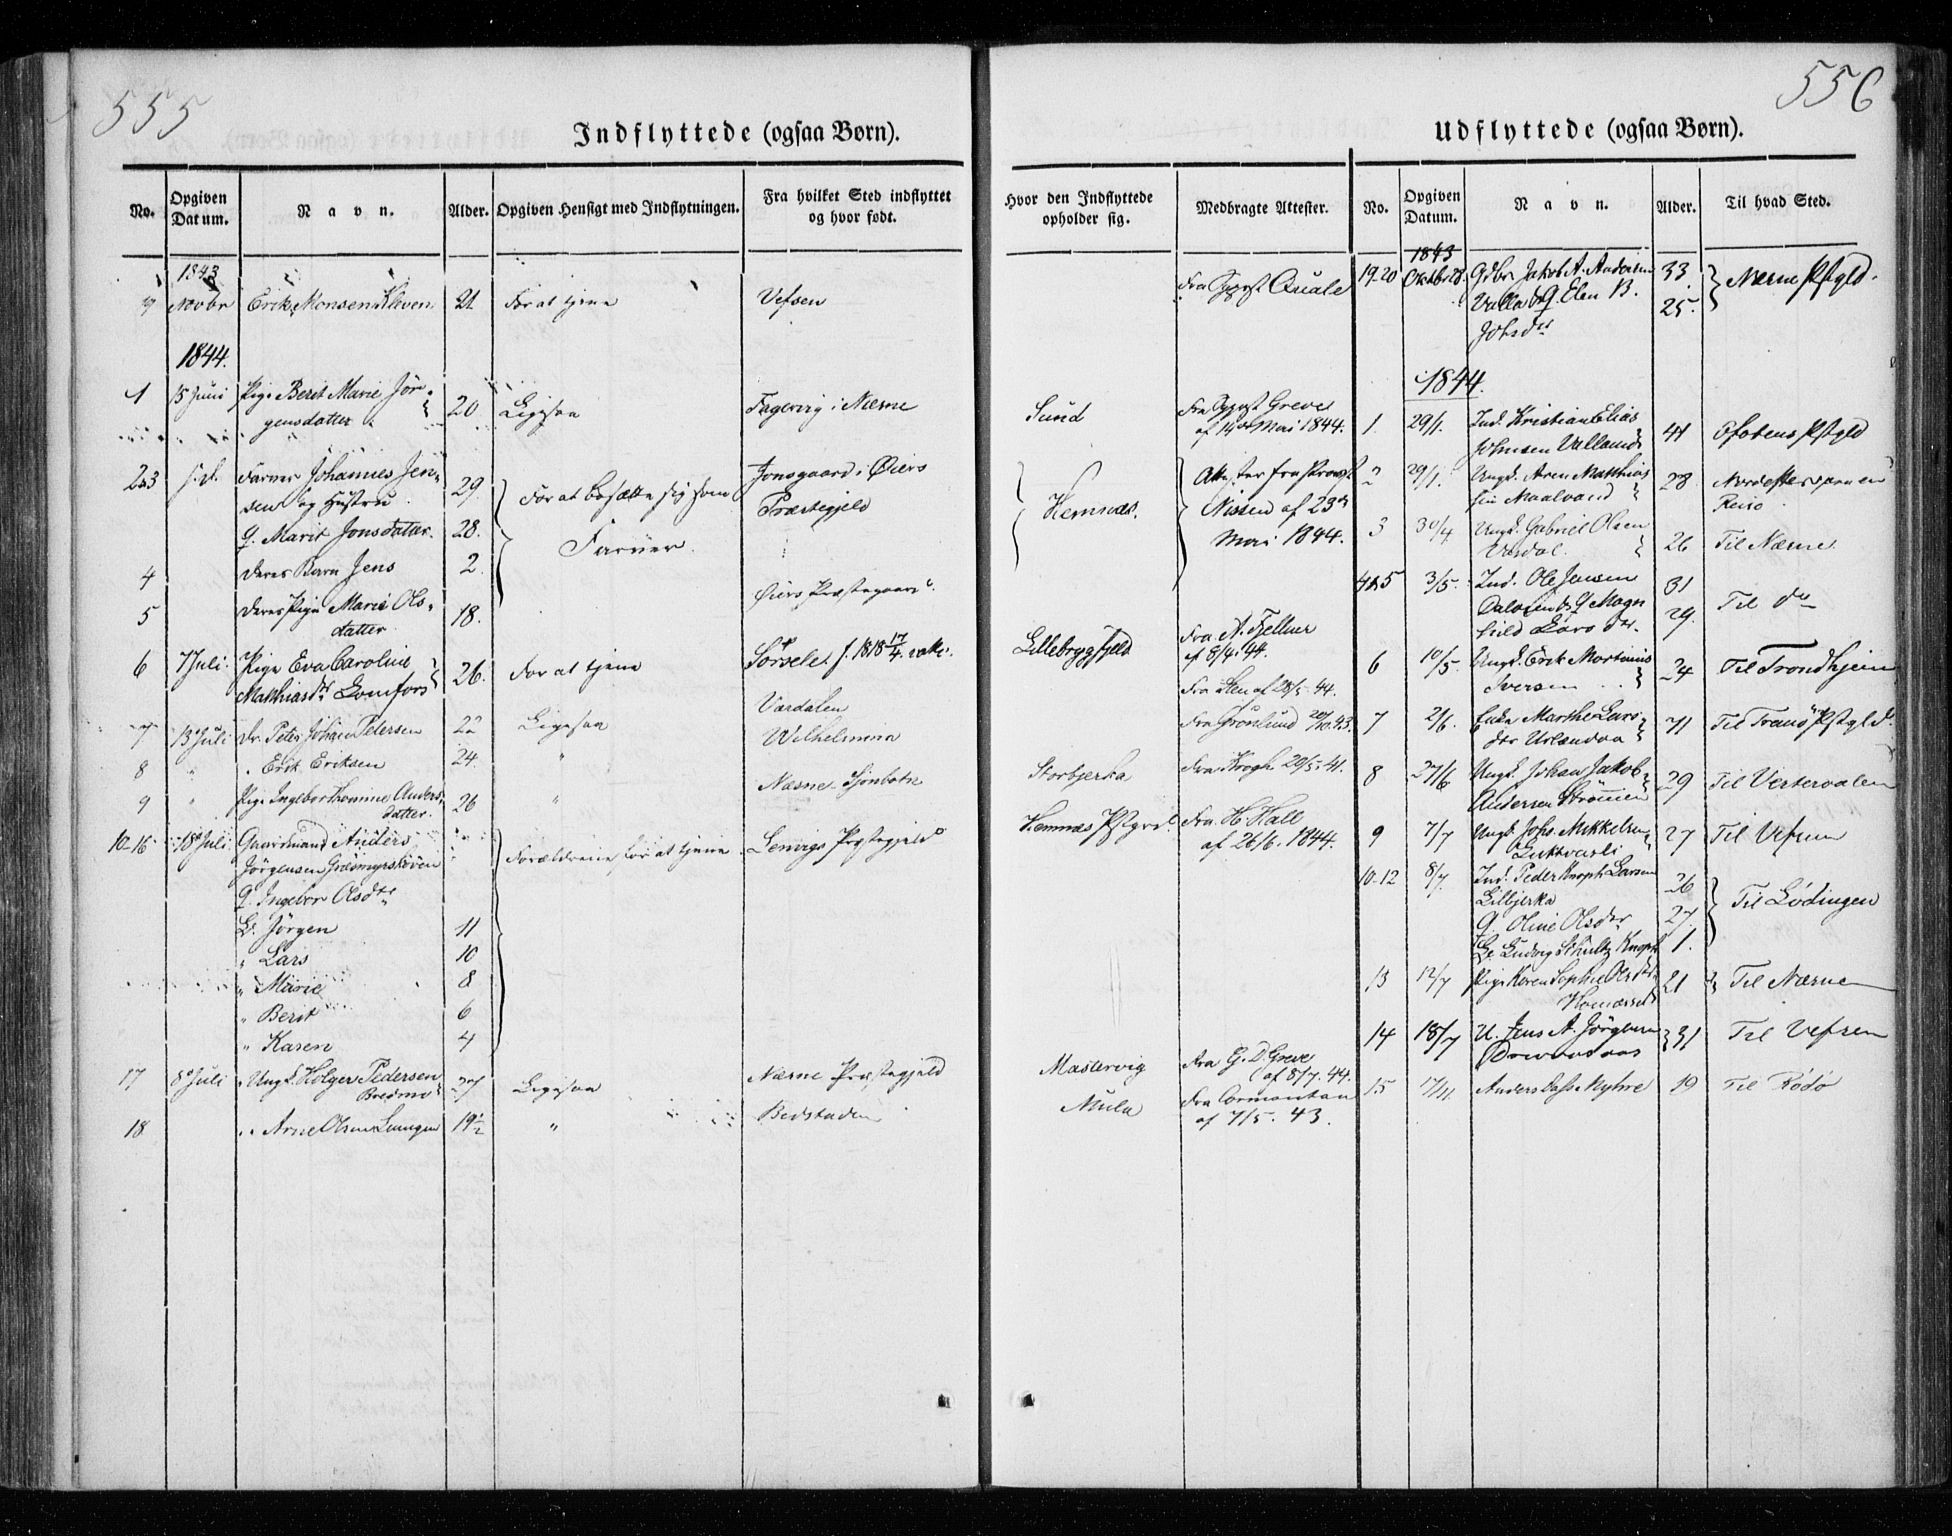 555
Indflyttede (ogsaa Børn).
No.
Opgiven Datum.
Navn.
Alder.
Opgiven Hensigt med Indflytningen.
Fra hvilket Sted indflyttet og hvor født.
1843
9 Novbr Erik Monsen Kleven 21 For at tjene Vefsen
1844.
1 15 Juni Pige Berit Marie Jör-
gensdatter 20 Ligesaa Fagervig i Næsne
2&3 s. d. Farver Johannes Jen-
sen og Hustru 29 For at bosætte sig som Jonsgaard i Øiers
Q. Marit Jonsdatter. 28. Farver. Præstegjeld
4 deres Barn Jens 2
5 deres Pige Marie Ols-
datter 18. Øiers Præstegaard
6 7 Juli. Pige Eva Caroline
Matthiasdtr Lomfors 26. For at tjene Sørselet f. 1818 17/4
7 13 Juli Dr. Peter Johan Petersen 22 Ligesaa Værdalen
8 " Erik Eriksen 24. " Wilhelmina
9 " Pige Ingebor Anders-
datter. 26 " Næsne Sjonbotn
10-16 18 Juli. Gaardmand Anders
Jørgensen Græsmyrskoven Forældrene for at tjene Lenvigs Præstegjeld
Q. Ingebor Olsdtr
B. Jørgen 11
" Lars 10
" Marie 8
" Berit 6
" Karen 4
17 8 Juli Ungk. Holger Pedersen
Bredmo 27 Ligesaa Næsne Præstegjeld
18 " Arne Olsen 19½ " Bedstaden
556
Udflyttede (ogsaa Børn).
Hvor den Indflyttede opholder sig.
Medbragte Attester.
No.
Opgiven Datum.
Navn.
Alder.
Til hvad Sted.
Fra Qvale
Sund Fra Greve
af 14de Mai 1844.
Hemnæs. Attester fra Provst
Nissen af 23de
Mai 1844.
Lillebrygfjeld Fra A. Fjellner
af 8/4. 44.
Fra Sten af 28/5 - 44.
Fra Grönlund 20/10. 43.
Storbjerka Fra Krogh 29/5. 41.
Hemnæs Pstgrd. Fra H. Hall
af 26/6. 1844.
Mastervig Fra G. D. Greve
af 8/7. 44.
Mula Fra Cormontan
af 7/5. 43.
1843
19-20 Oktbr 28. Gdbr Jakob A. Andersen 33.
Valla & Q. Elen B. 25. Næsne Pstgld.
Johsdtr
1844.
1. 29/1. Ind. Kristian Elias
Johnsen Valland 41 Ofotens Pstgld
2 29/1. Ungk. Aren Matthias 28
3 30/4 Ungk. Gabriel Olsen
26 Til Næsne
4&5 3/5. Ind. Ole Jensen 31
Dalosen & Q. Magn
hild Larsdtr. 29. Til do
6 10/5 Ungk. Erik Mortinus
Iversen 24 Til Trondhjem
7 2/6. Enke Marthe Lars-
dtr Urlandaa 71 Til Tranö Pstgld.
8 27/6 Ungk. Johan Jakob
Andersen Strömmen 29 Til Vesteraalen
9 7/7 Ungk. Johs. Mikkelsen
Luktvasli 27 Til Vefsen
10-12 8/7. Ind. Peder Knoph Larsen
Lilbjerka 26 Til Lödingen
Q. Oline Olsdtr 27
B. Ludvig Schultz Knoph 1.
13 12/7 Pige Karen Sophie Olsdtr 21 Til Næsne
14 18/7 U. Jens A. Jörgensen 31 Til Vefsen
15 17/11 Anders Dass Myhre 19 Til Rödö